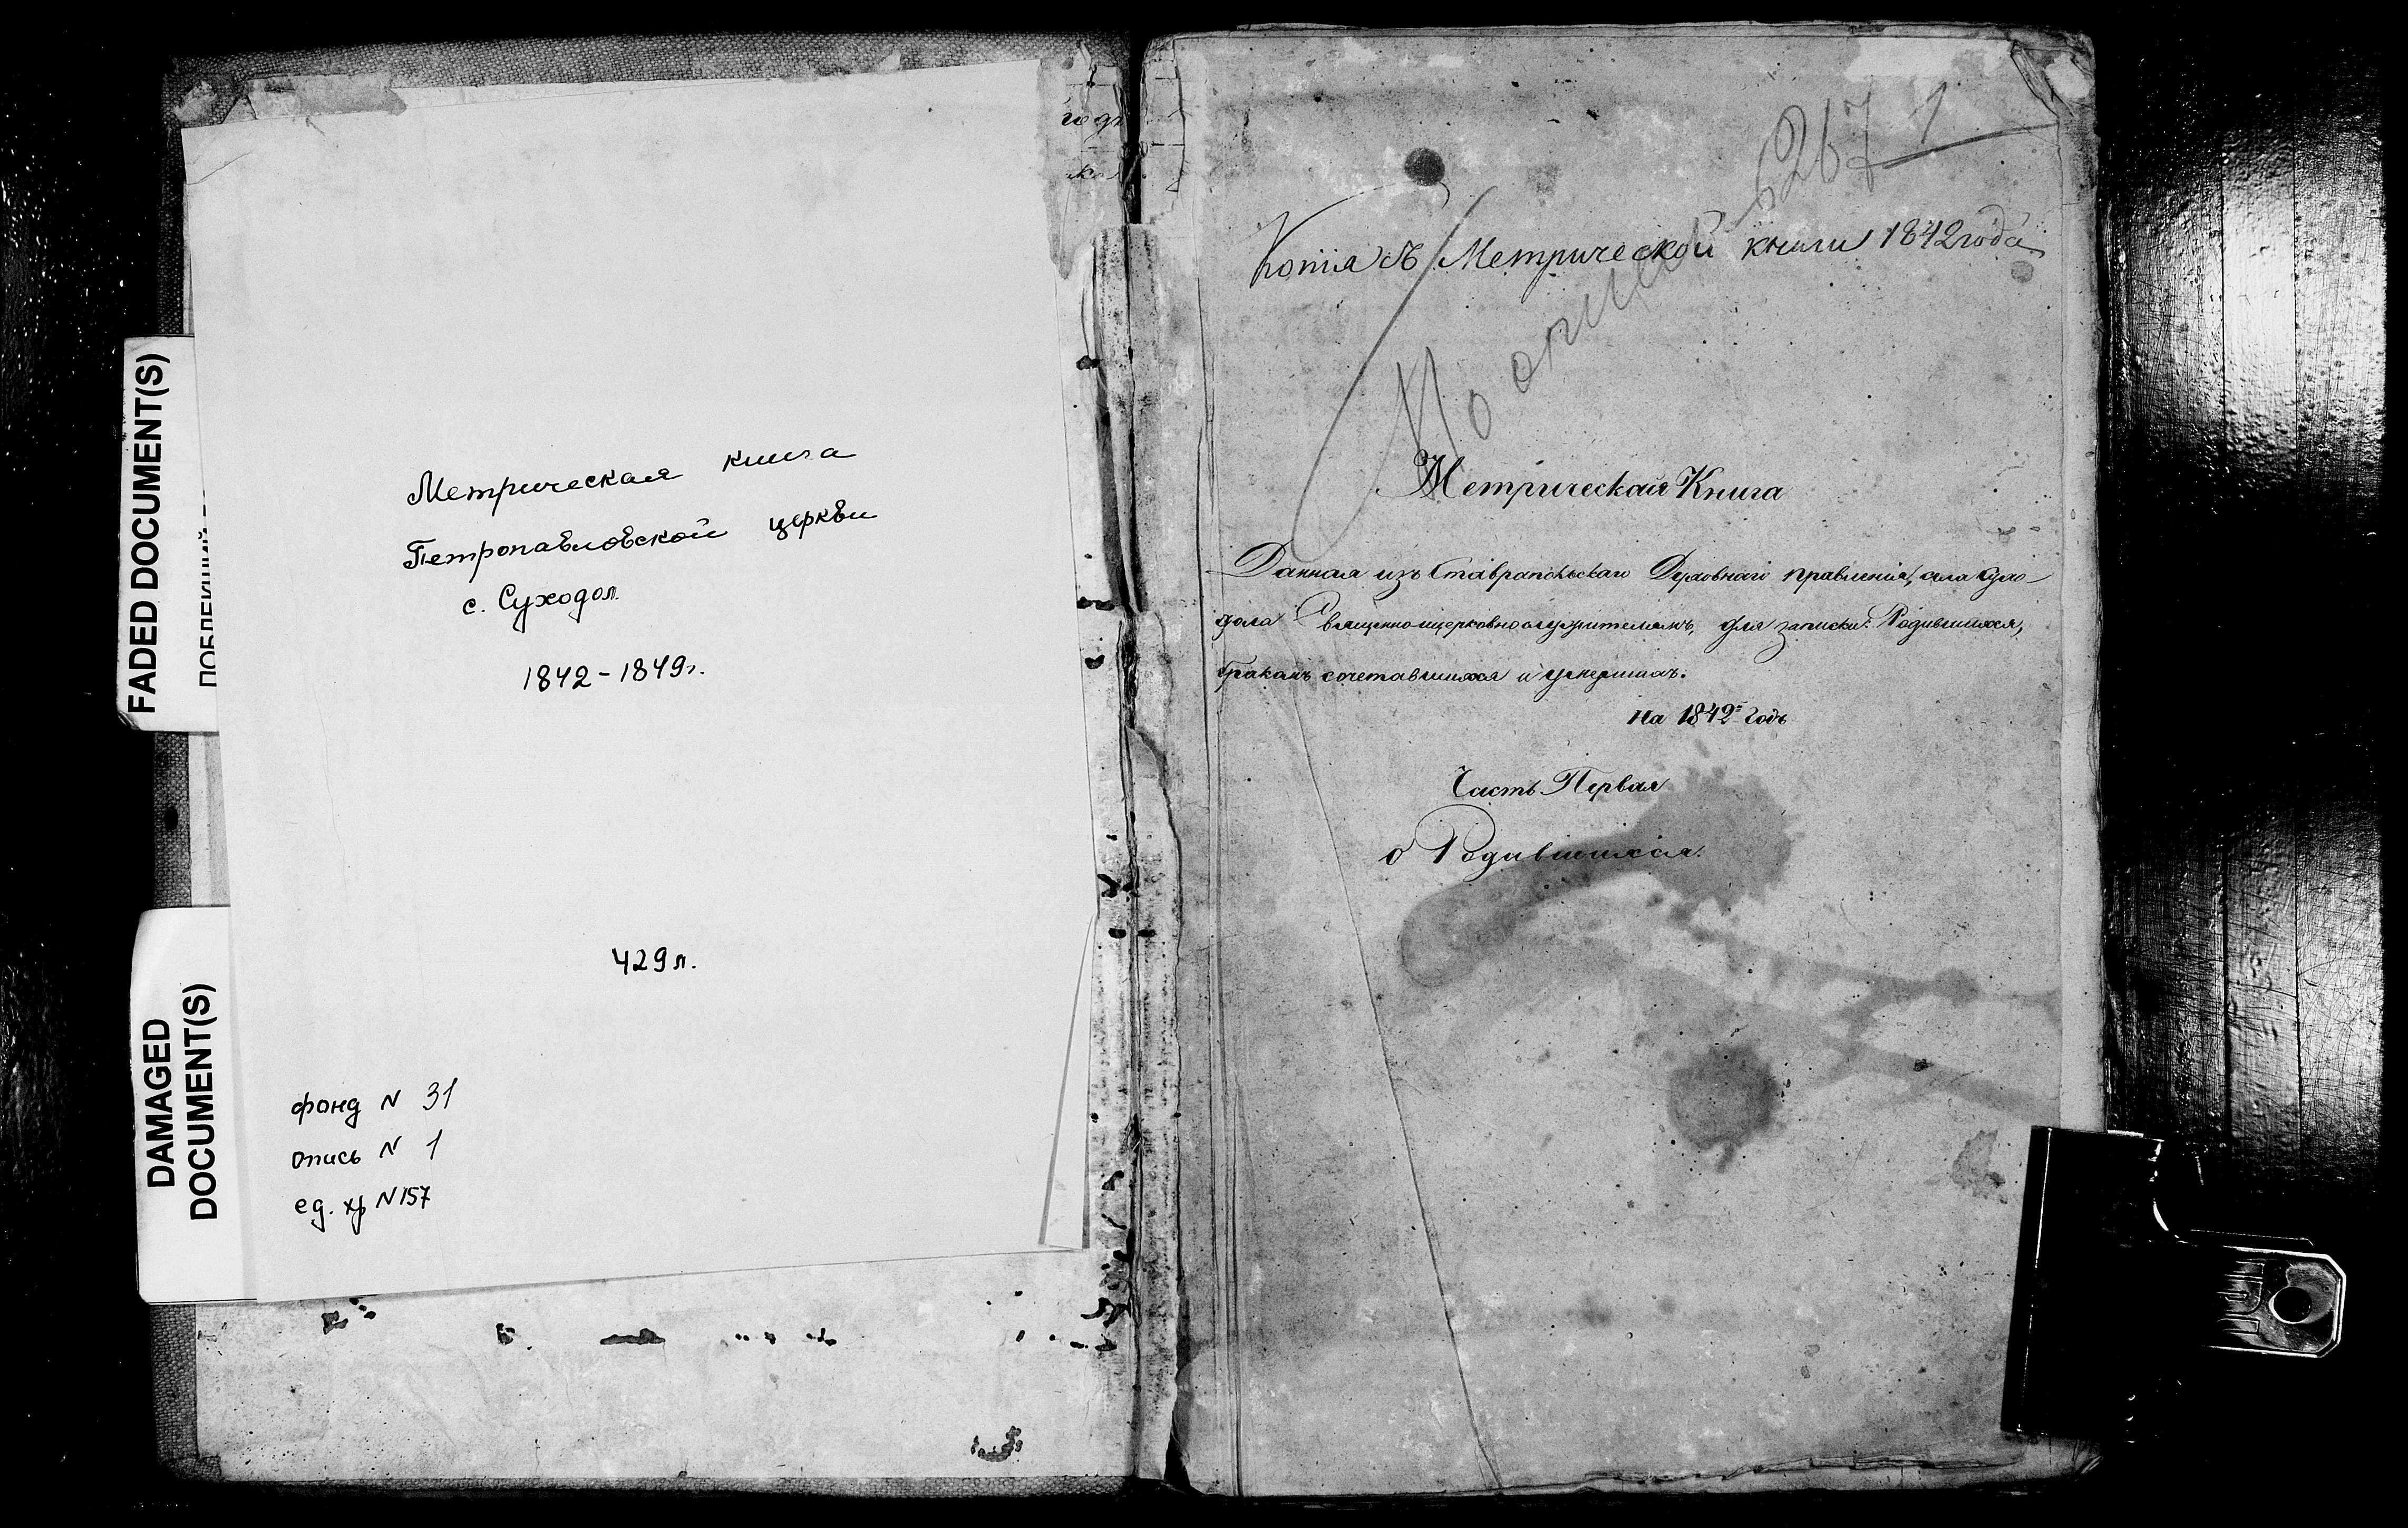 FADED DOCUMENT(S)
DAMAGED
DOCUMENT(S)
Метрическая книга
Петропавловской церкви
с. Суходол.
1842-1849г.
429 л.
фонд N 31
опись N 1
ед. хр N 157
1
267
Копiя съ Метрической книги 1842 года
По описи
Метрическая Книга
Данная изъ Ставропольскаго Духовнаго правленiя, села Сухо-
дола Священноицерковнослужителямъ, для записки: Родившихся,
бракомъ сочетавшихся и умершихъ.
На 1842й годъ
Часть Первая
о Родившихся.